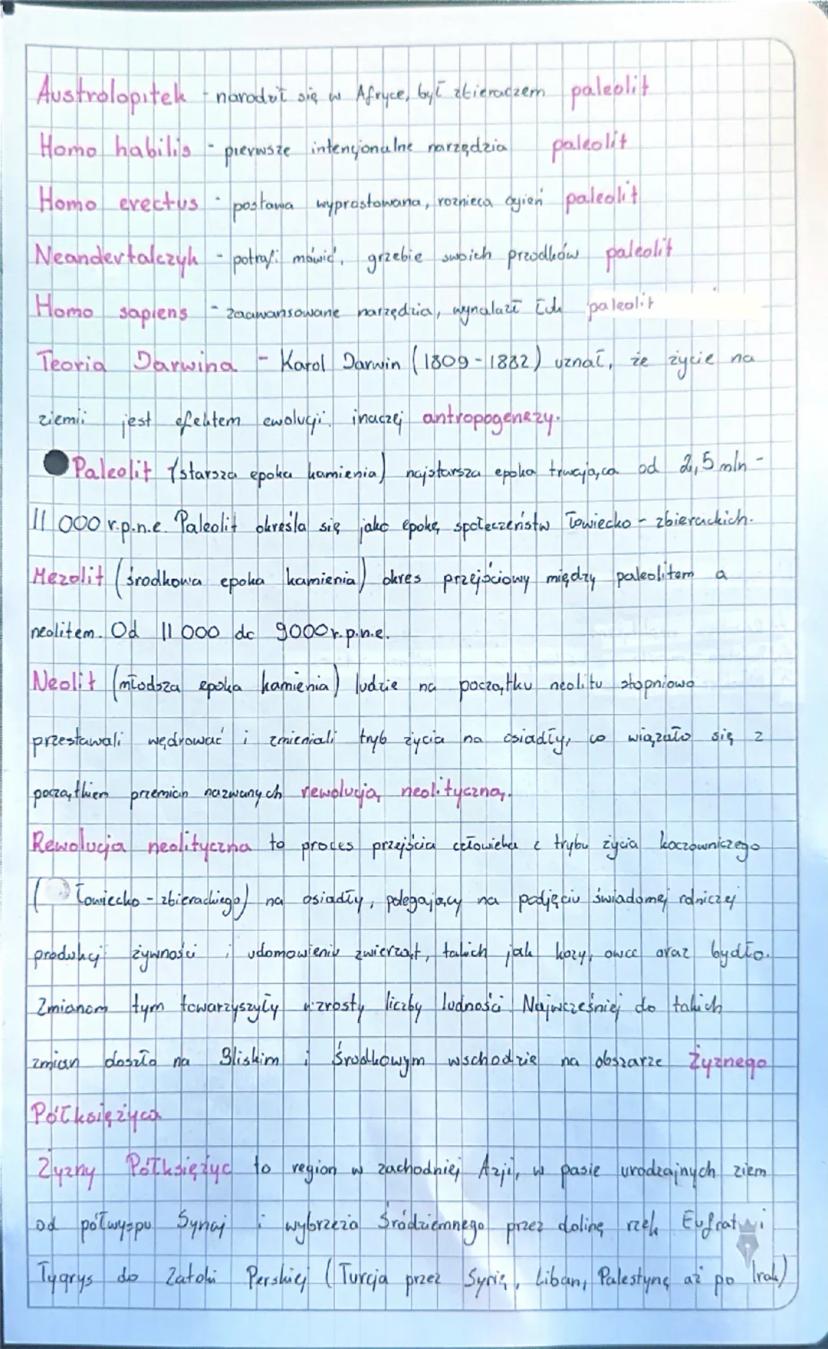 Australopitek - narodził się w Afryce, był zbieraczem paleolit
Homo habilis - pierwsze intencjonalne narzędzia paleolit
Homo erectus - postawa wyprostowana, roznieca ogień paleolit
Neandertalczyk - potrafi mówić, grzebie swoich przodków paleolit
Homo sapiens - zaawansowane narzędzia, wynalazł łuk paleolit
Teoria Darwina - Karol Darwin (1809 - 1882) uznał, że życie na
ziemii jest efektem ewolucji, inaczej antropogenezy.
Paleolit (starsza epoka kamienia) najstarsza epoka trwająca od 2,5 mln -
11 000 r.p.n.e. Paleolit określa się jako epokę społeczeństw łowiecko - zbierackich.
Mezolit (środkowa epoka kamienia) okres przejściowy między paleolitem a
neolitem. Od 11 000 do 9000 r.p.n.e.
Neolit (młodsza epoka kamienia) ludzie na początku neolitu stopniowo
przestawali wędrować i zmieniali tryb życia na osiadły, co wiązało się z
początkiem przemian nazwanych rewolucją neolityczną.
Rewolucja neolityczna to proces przejścia człowieka z trybu życia koczowniczego
(łowiecko - zbierackiego) na osiadły, polegający na podjęciu świadomej rolniczej
produkcji żywności i udomowieniu zwierząt, takich jak kozy, owce oraz bydło.
Zmianom tym towarzyszyły wzrosty liczby ludności. Najwcześniej do takich
zmian doszło na Bliskim i Środkowym wschodzie na obszarze Żyznego
Półksiężyca
Żyzny Półksiężyc to region w zachodniej Azji, w pasie urodzajnych ziem
od półwyspu Synaj i wybrzeża Śródziemnego przez dolinę rzek Eufrat i
Tygrys do Zatoki Perskiej (Turcja przez Syrię, Liban, Palestynę aż po Irak)